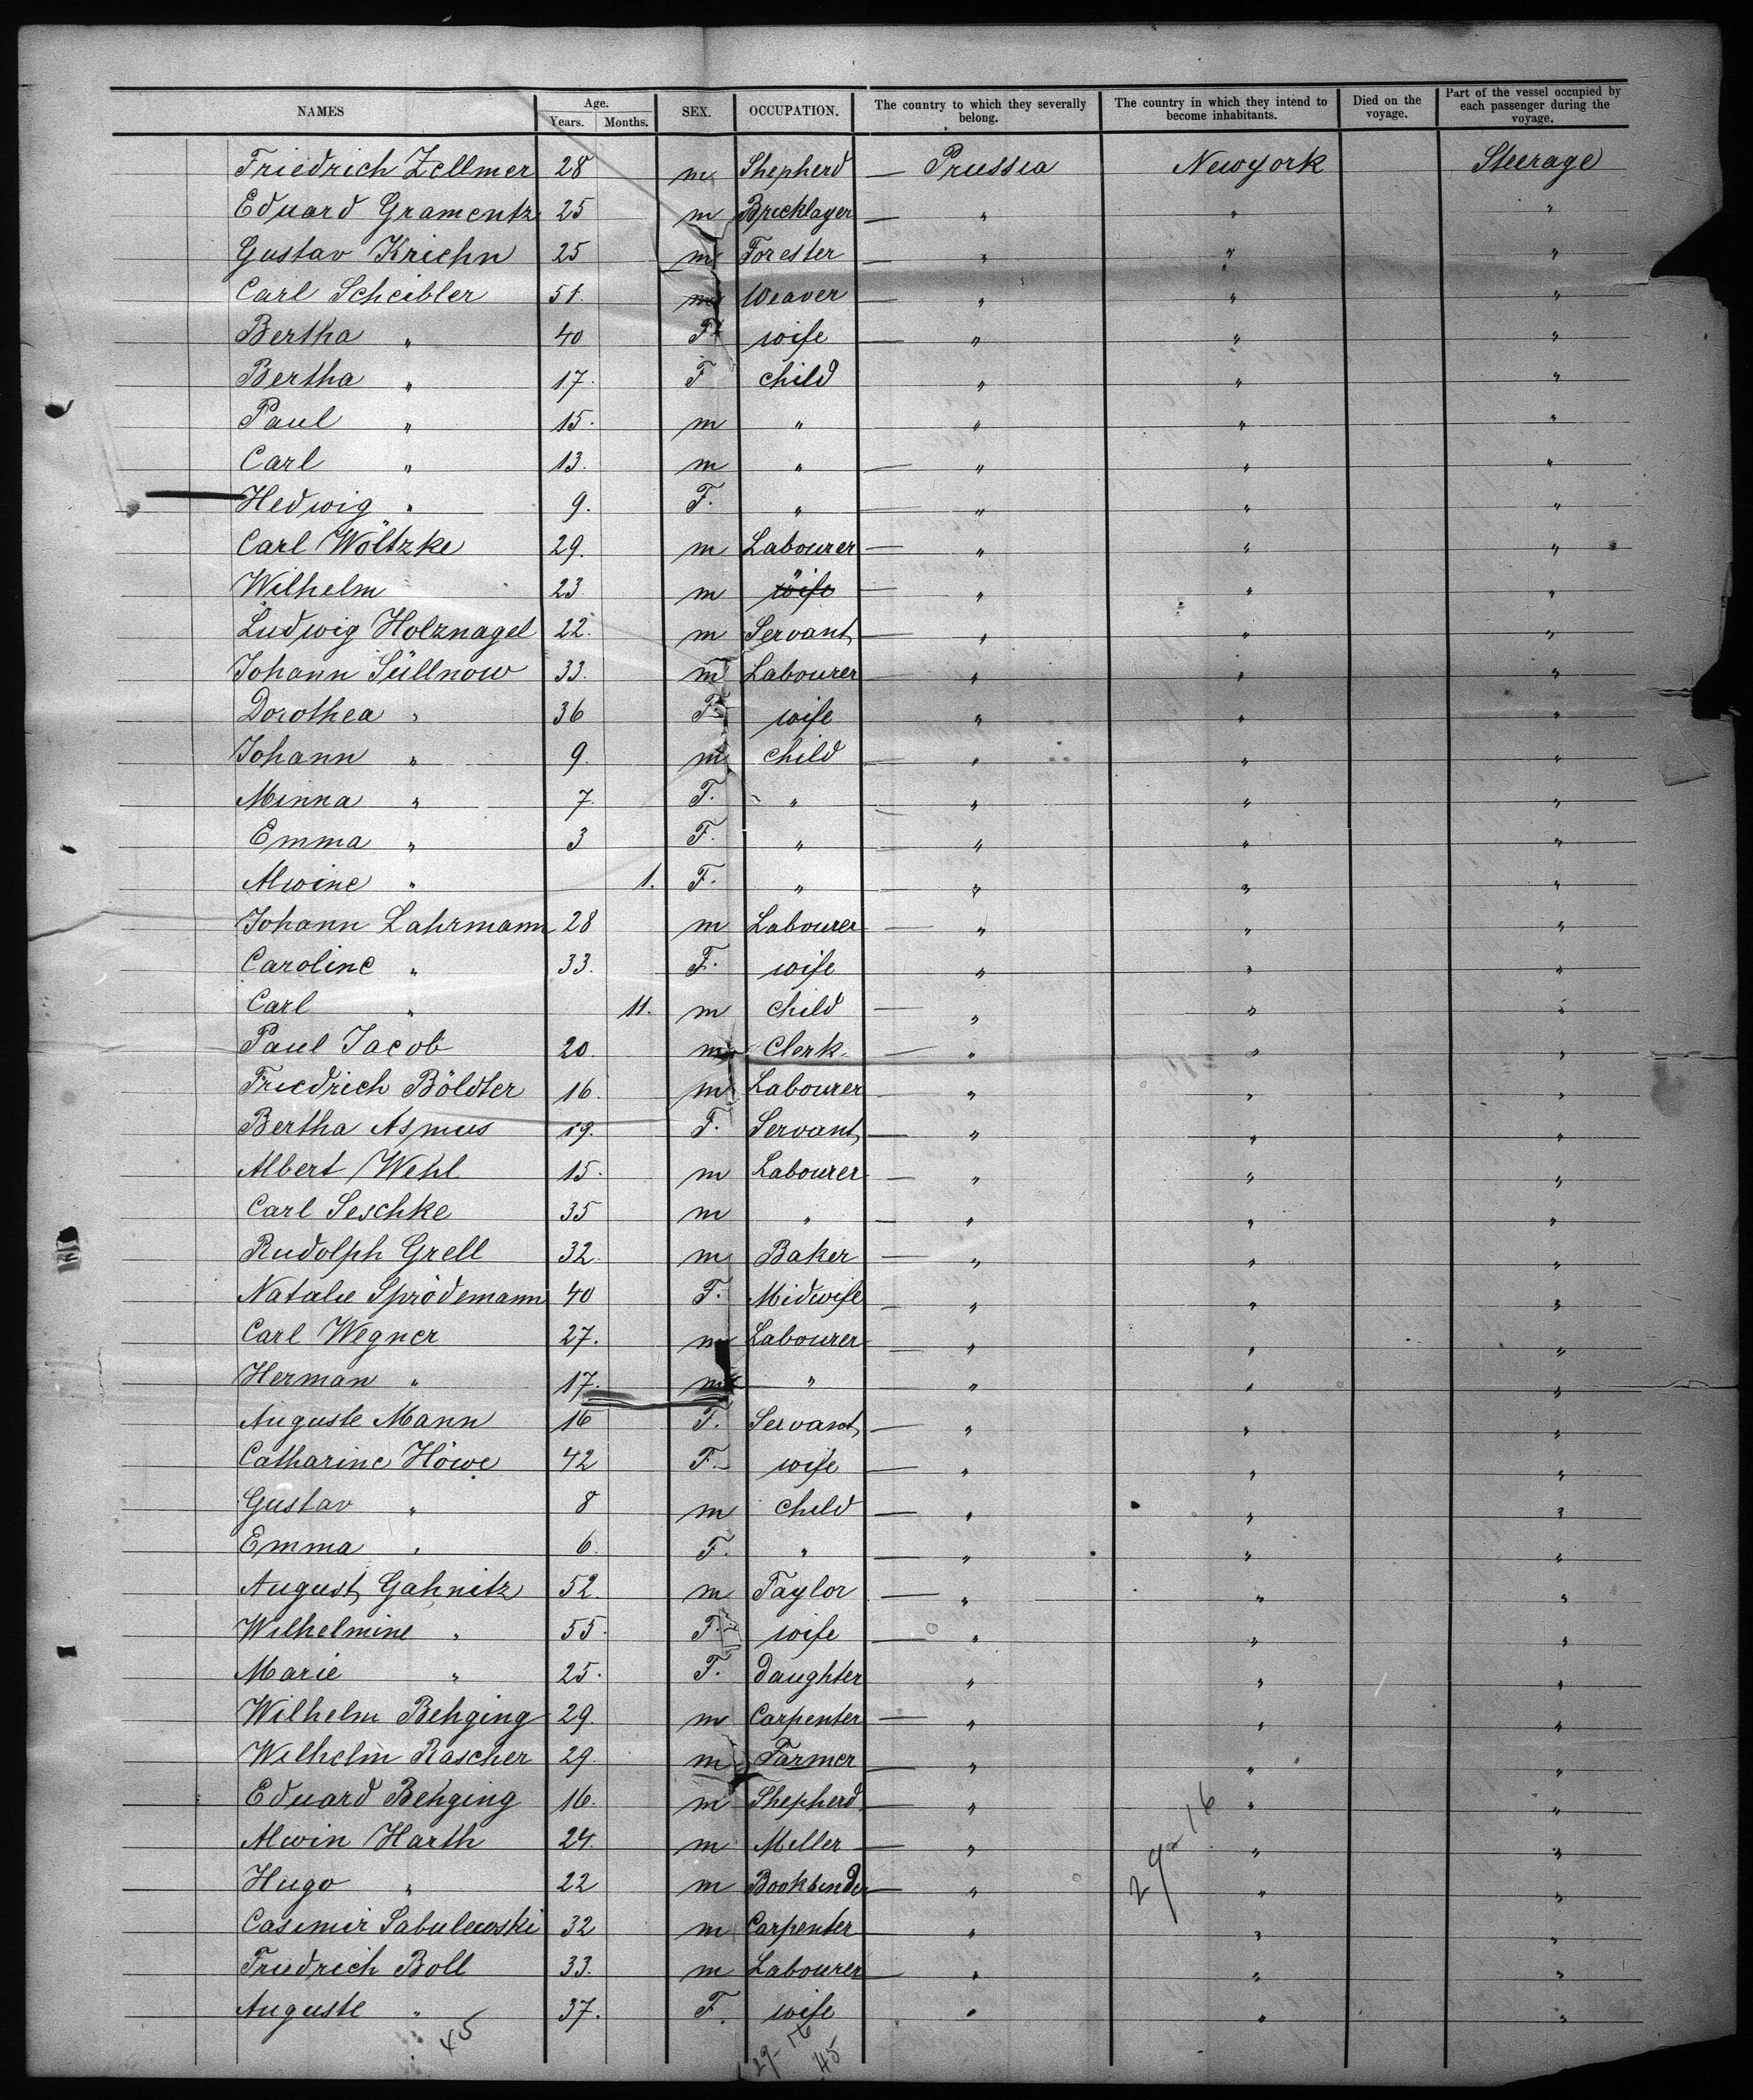 NAMES Age. Years. Months. SEX. OCCUPATION. The country to which they severally belong. The country in which they intend to become inhabitants. Died on the voyage. Part of the vessel occupied by each passenger during the voyage.
Friedrich Zellmer 28 m Shepherd — Prussia New York Steerage
Eduard Gramentz 25 m Bricklayer — " " "
Gustav Kriehn 25 m Forester — " " "
Carl Scheibler 51. m Weaver — " " "
Bertha " 40 F. wife — " " "
Bertha " 17. F child " " "
Paul " 15. m " " " "
Carl " 13. m " — " " "
Hedwig " 9. F. " — " " "
Carl Wöltzke 29. m Labourer — " " "
Wilhelm 23 m " wife — " " "
Ludwig Holznagel 22. m Servant — " " "
Johann Süllnow 33. m Labourer — " " "
Dorothea " 36 F. wife " " "
Johann " 9. m child — " " "
Minna " 7. F. " — " " "
Emma " 3 F. " — " " "
Alwine " 1. F. " — " " "
Johann Lahrmann 28 m Labourer — " " "
Caroline " 33. F. wife " " "
Carl " 11. m child — " " "
Paul Jacob 20. m Clerk. — " " "
Friedrich Böldter 16. m Labourer " " "
Bertha Asmus 19. F. Servant — " " "
Albert Wehl 15. m Labourer — " " "
Carl Seschke 35 m " — " " "
Rudolph Grell 32. m Baker — " " "
Natalie Sprödemann 40 F. Midwife — " " "
Carl Wegner 27. m Labourer — " " "
Herman " 17. m " " " "
Auguste Mann 16 F. Servant — " " "
Catharine Höwe 42 F. wife — " " "
Gustav " 8 m child — " " "
Emma " 6. F. " — " " "
August Gahnitz 52. m Taylor — " " "
Wilhelmine " 55. F. wife — " " "
Marie " 25. F. daughter " " "
Wilhelm Behging 29. m Carpenter — " " "
Wilhelm Rascher 29. m Farmer — " " "
Eduard Behging 16. m Shepherd — " " "
Alwin Harth 24. m Meller — " " "
Hugo " 22 m Bookbinder — " " "
Casimir Sabulewski 32 m Carpenter — " " "
Friedrich Boll 33. m Labourer — " " "
Auguste " 37. F. wife " " "
29-16
45
29-16
45